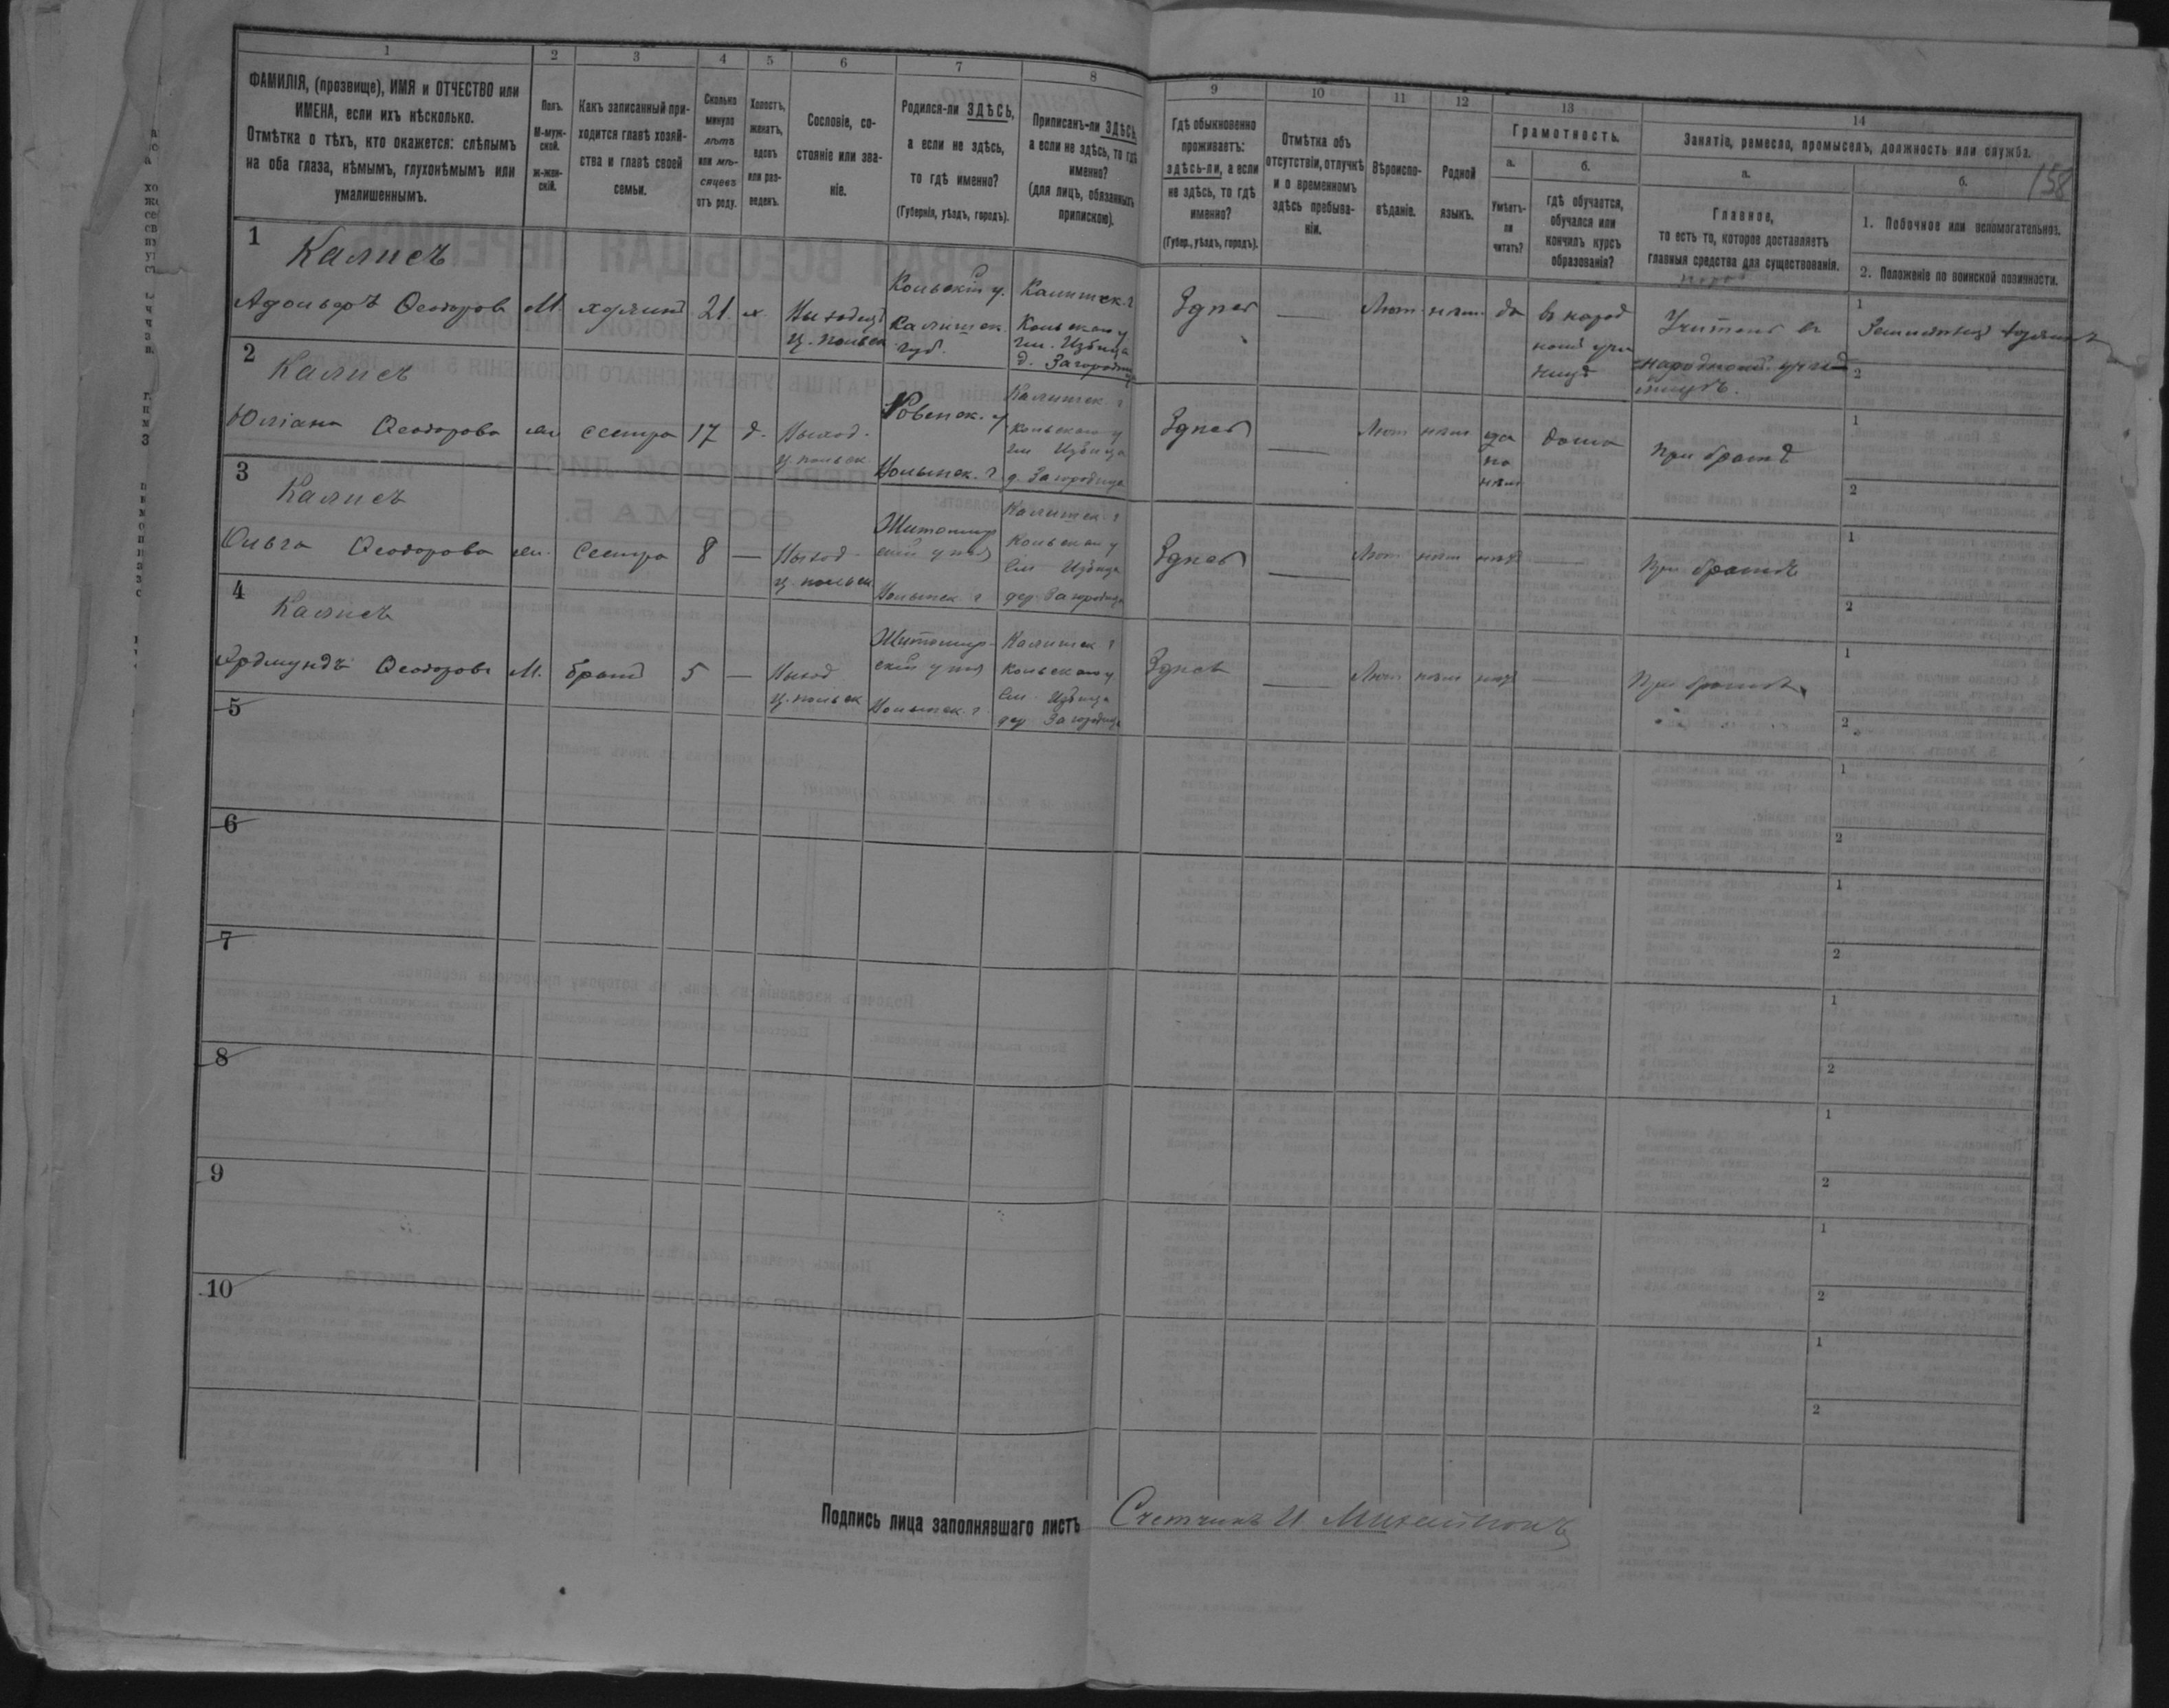 1 2 3 4 5 6 7 8 9 10 11 12 13 14
ФАМИЛІЯ, (прозвище), ИМЯ и ОТЧЕСТВО или
ИМЕНА, если ихъ нѣсколько.
Отмѣтка о тѣхъ, кто окажется: слѣпымъ
на оба глаза, нѣмымъ, глухонѣмымъ или
умалишеннымъ.
Полъ.
М-муж-
ской.
ж-жен-
скій.
Какъ записанный при-
ходится главѣ хозяй-
ства и главѣ своей
семьи.
Сколько
минуло
лѣтъ
или мѣ-
сяцевъ
отъ роду.
Холостъ,
женатъ,
вдовъ
или раз-
веденъ.
Сословіе, со-
стояніе или зва-
ніе.
Родился-ли ЗДѢСЬ,
а если не здѣсь,
то гдѣ именно?
(Губернія, уѣздъ, городъ).
Приписанъ-ли ЗДѢСЬ,
а если не здѣсь, то гдѣ
именно?
(для лицъ, обязанныхъ
припискою).
Гдѣ обыкновенно
проживаетъ:
здѣсь-ли, а если
не здѣсь, то гдѣ
именно?
(Губер., уѣздъ, городъ).
Отмѣтка объ
отсутствіи, отлучкѣ
и о временномъ
здѣсь пребыва-
ніи.
Вѣроиспо-
вѣданіе.
Родной
языкъ.
Грамотность.
а.
Умѣетъ-
ли
читать?
б.
гдѣ обучается,
обучался или
кончилъ курсъ
образованія?
Занятіе, ремесло, промыселъ, должность или служба.
158
а.
Главное,
то есть то, которое доставляетъ
главныя средства для существованія.
б.
1. Побочное или вспомогательное.
2. Положеніе по воинской повинности.
1
Калисъ
Адольфъ Ѳеодоров М. хозяинъ 21 х
Выходецъ
ц. польск
Кольскій у.
Калишск.
губ.
Калишск. г
Кольскаго у
гм. Избица
д. Загородница
Здѣсь — Лют. нѣм. да
в народ
ной учи
лищѣ
Учитель в
народномъ учи
лищѣ.
1
2
2
Калисъ
Юліана Ѳеодорова ж сестра 17 д.
Выход.
ц. польск
Ровенск. у
Волынск. г.
Калишск. г
Кольскаго у
гм Избица
д. Загородница
Здѣсь — Лют нѣм
да
по
нѣм
дома
При братѣ
1
2
3
Калисъ
Ольга Ѳеодорова ж. Сестра 8 —
Выход
ц. польск
Житомир
скій у
Волынск г
Калишск. г
Кольскаго у
Гм Избица
дер Загородница
Здѣсь — Лют нѣм нѣтъ —
При братѣ
1
2
4
Калисъ
Ѳеодоровъ М. братъ 5 —
Выход
ц. польск
Житомир-
скій у
Волынск. г
Калишск г
Кольскаго у
Гм. Избица
дер Загородница
Здѣсь — Лют нѣм нѣтъ —
При братѣ
1
2
5
1
2
6
1
2
7
1
2
8
1
2
9
1
2
10
1
2
Подпись лица заполнявшаго листъ Счетчикъ И